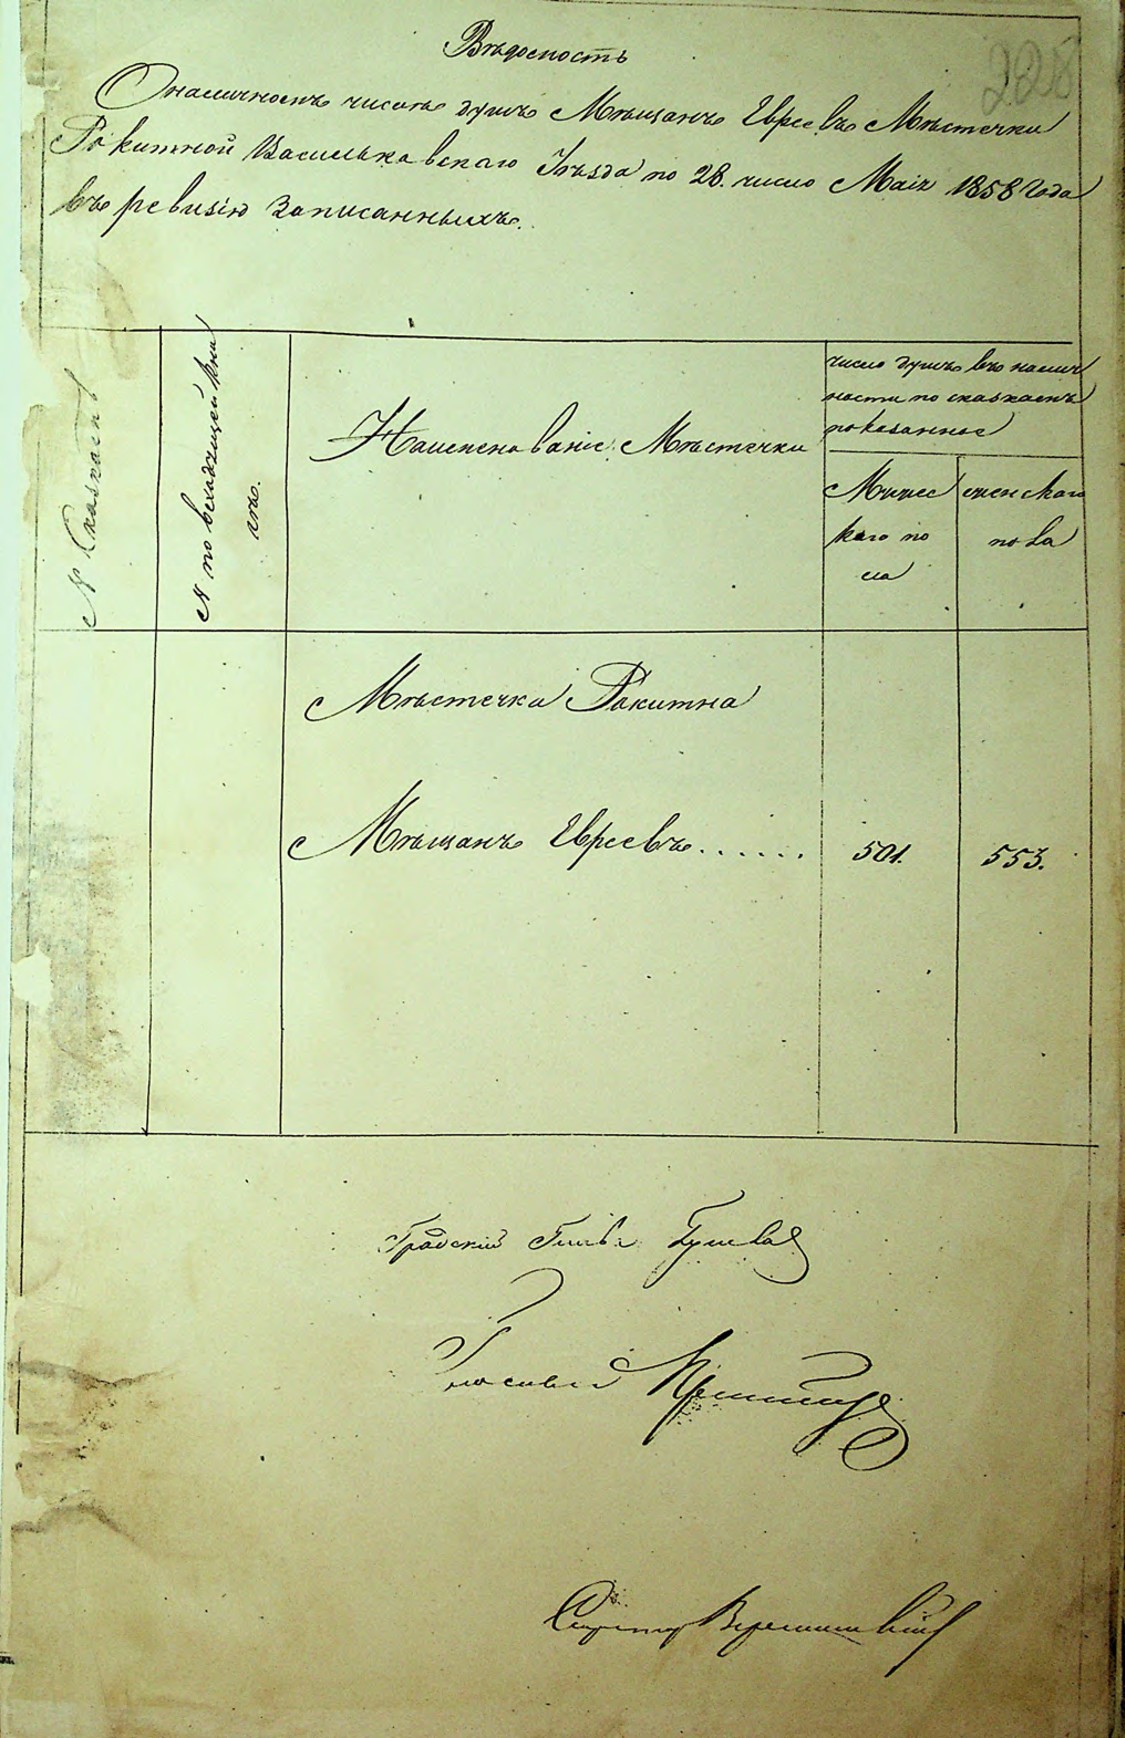 Вѣдомость
228
О наличномъ числѣ душъ Мѣщанъ Евреевъ Мѣстечка
Рокитной Васильковскаго Уѣзда по 28. число Маія 1858 Года
въ ревизію Записанныхъ.
№ Сказкамъ
№ по всходящей кни
гѣ.
Наименованіе Мѣстечки
число душъ въ налич
ности по сказкамъ
показанное
Мужес
каго по
ла
женскаго
пола
Мѣстечка Ракитна
Мѣщанъ Евреевъ......
501.
553.
Градскій Глава
Гласный